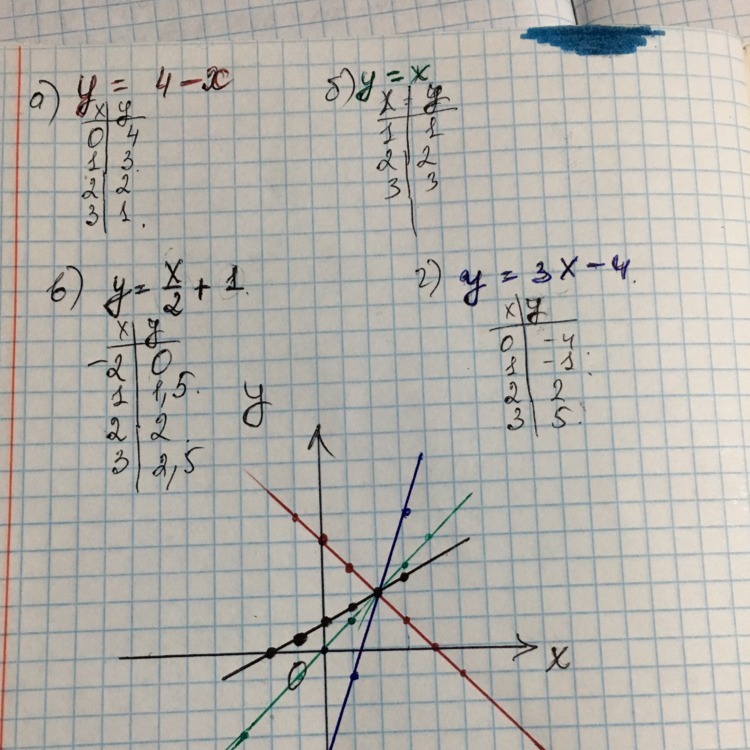 а) y = 4 - x
x y
0 4
1 3
2 2
3 1.
б) y = x
x y
1 1
2 2
3 3
в) y = x/2 + 1
x y
-2 0
1 1,5
2 2
3 2,5
г) y = 3x - 4
x y
0 -4
1 -1
2 2
3 5
y
0
x